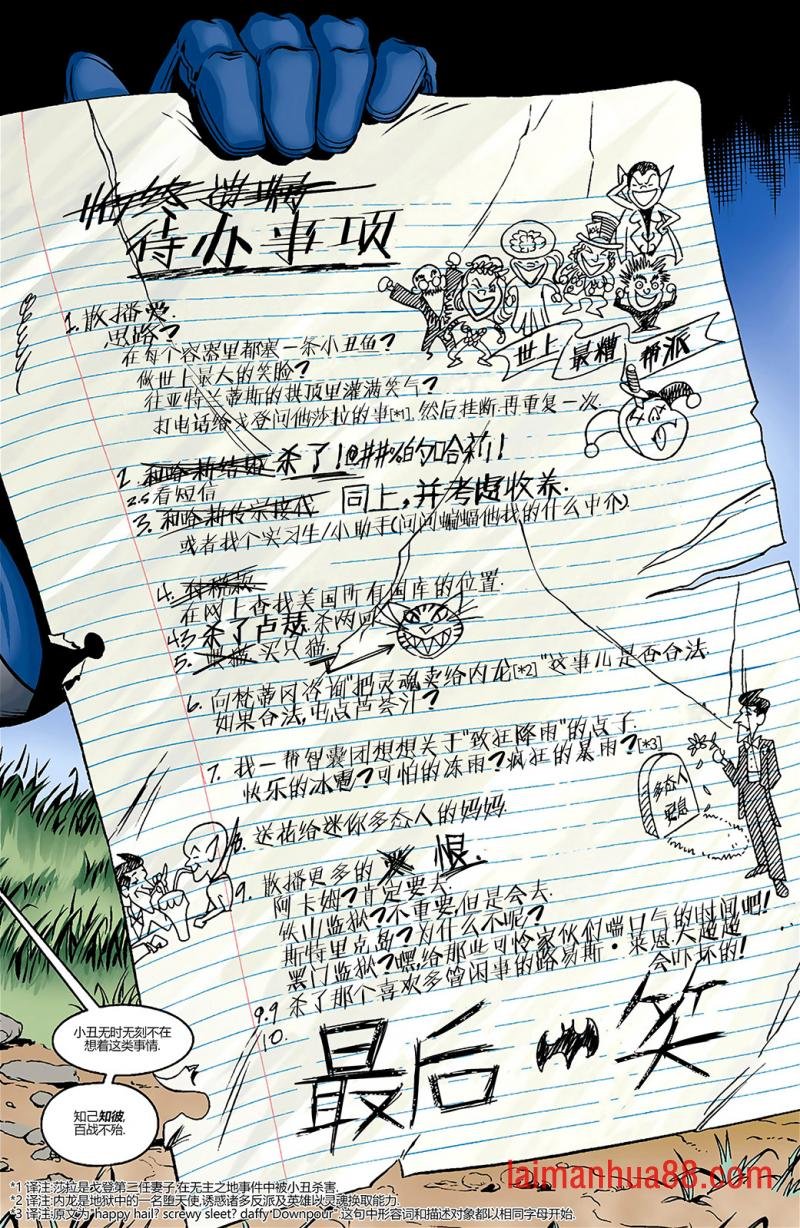 临终遗嘱
待办事项
1. 散播爱.
思路?
在每个容器里都裹一条小丑鱼?
做世上最大的笑脸?
往亚特兰蒂斯的拱顶里灌满笑气?
打电话给戈登问他莎拉的事[*1], 然后挂断.再重复一次.
世上 最糟 帮派
2. 和哈莉结婚 杀了!@##%的哈莉!
2.5 看短信
3. 和哈莉传宗接代 同上,并考虑收养.
或者找个实习生/小助手(问问蝙蝠他找的什么中介).
4.
在网上查找美国所有国库的位置.
4.3 杀了卢瑟 杀两回
5. 买只猫.
6. 向梵蒂冈咨询"把灵魂卖给内龙[*2]"这事儿是否合法.
如果合法,屯点芦荟汁?
7. 找一帮智囊团想想关于"致狂降雨"的点子.
快乐的冰雹?可怕的冻雨?疯狂的暴雨?[*3]
多态人
安息
8. 送花给迷你多态人的妈妈.
9. 散播更多的 恨.
阿卡姆?肯定要去.
铁山监狱?不重要,但是会去.
斯特里克岛?为什么不呢?
黑门监狱?嘿给那些可怜家伙们喘口气的时间吧!
9.9 杀了那个喜欢多管闲事的路易斯·莱恩,大超超会吓坏的!
10.
最后一笑
小丑无时无刻不在
想着这类事情.
知己知彼,
百战不殆.
*1 译注:莎拉是戈登第二任妻子,在无主之地事件中被小丑杀害.
*2 译注:内龙是地狱中的一名堕天使,诱惑诸多反派及英雄以灵魂换取能力.
*3 译注:原文为"happy hail? screwy sleet? daffy Downpour".这句中形容词和描述对象都以相同字母开始.
laimanhua88.com